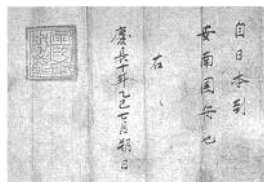 自日本到
安南国舟也
右、
慶長十年乙巳七月朔日